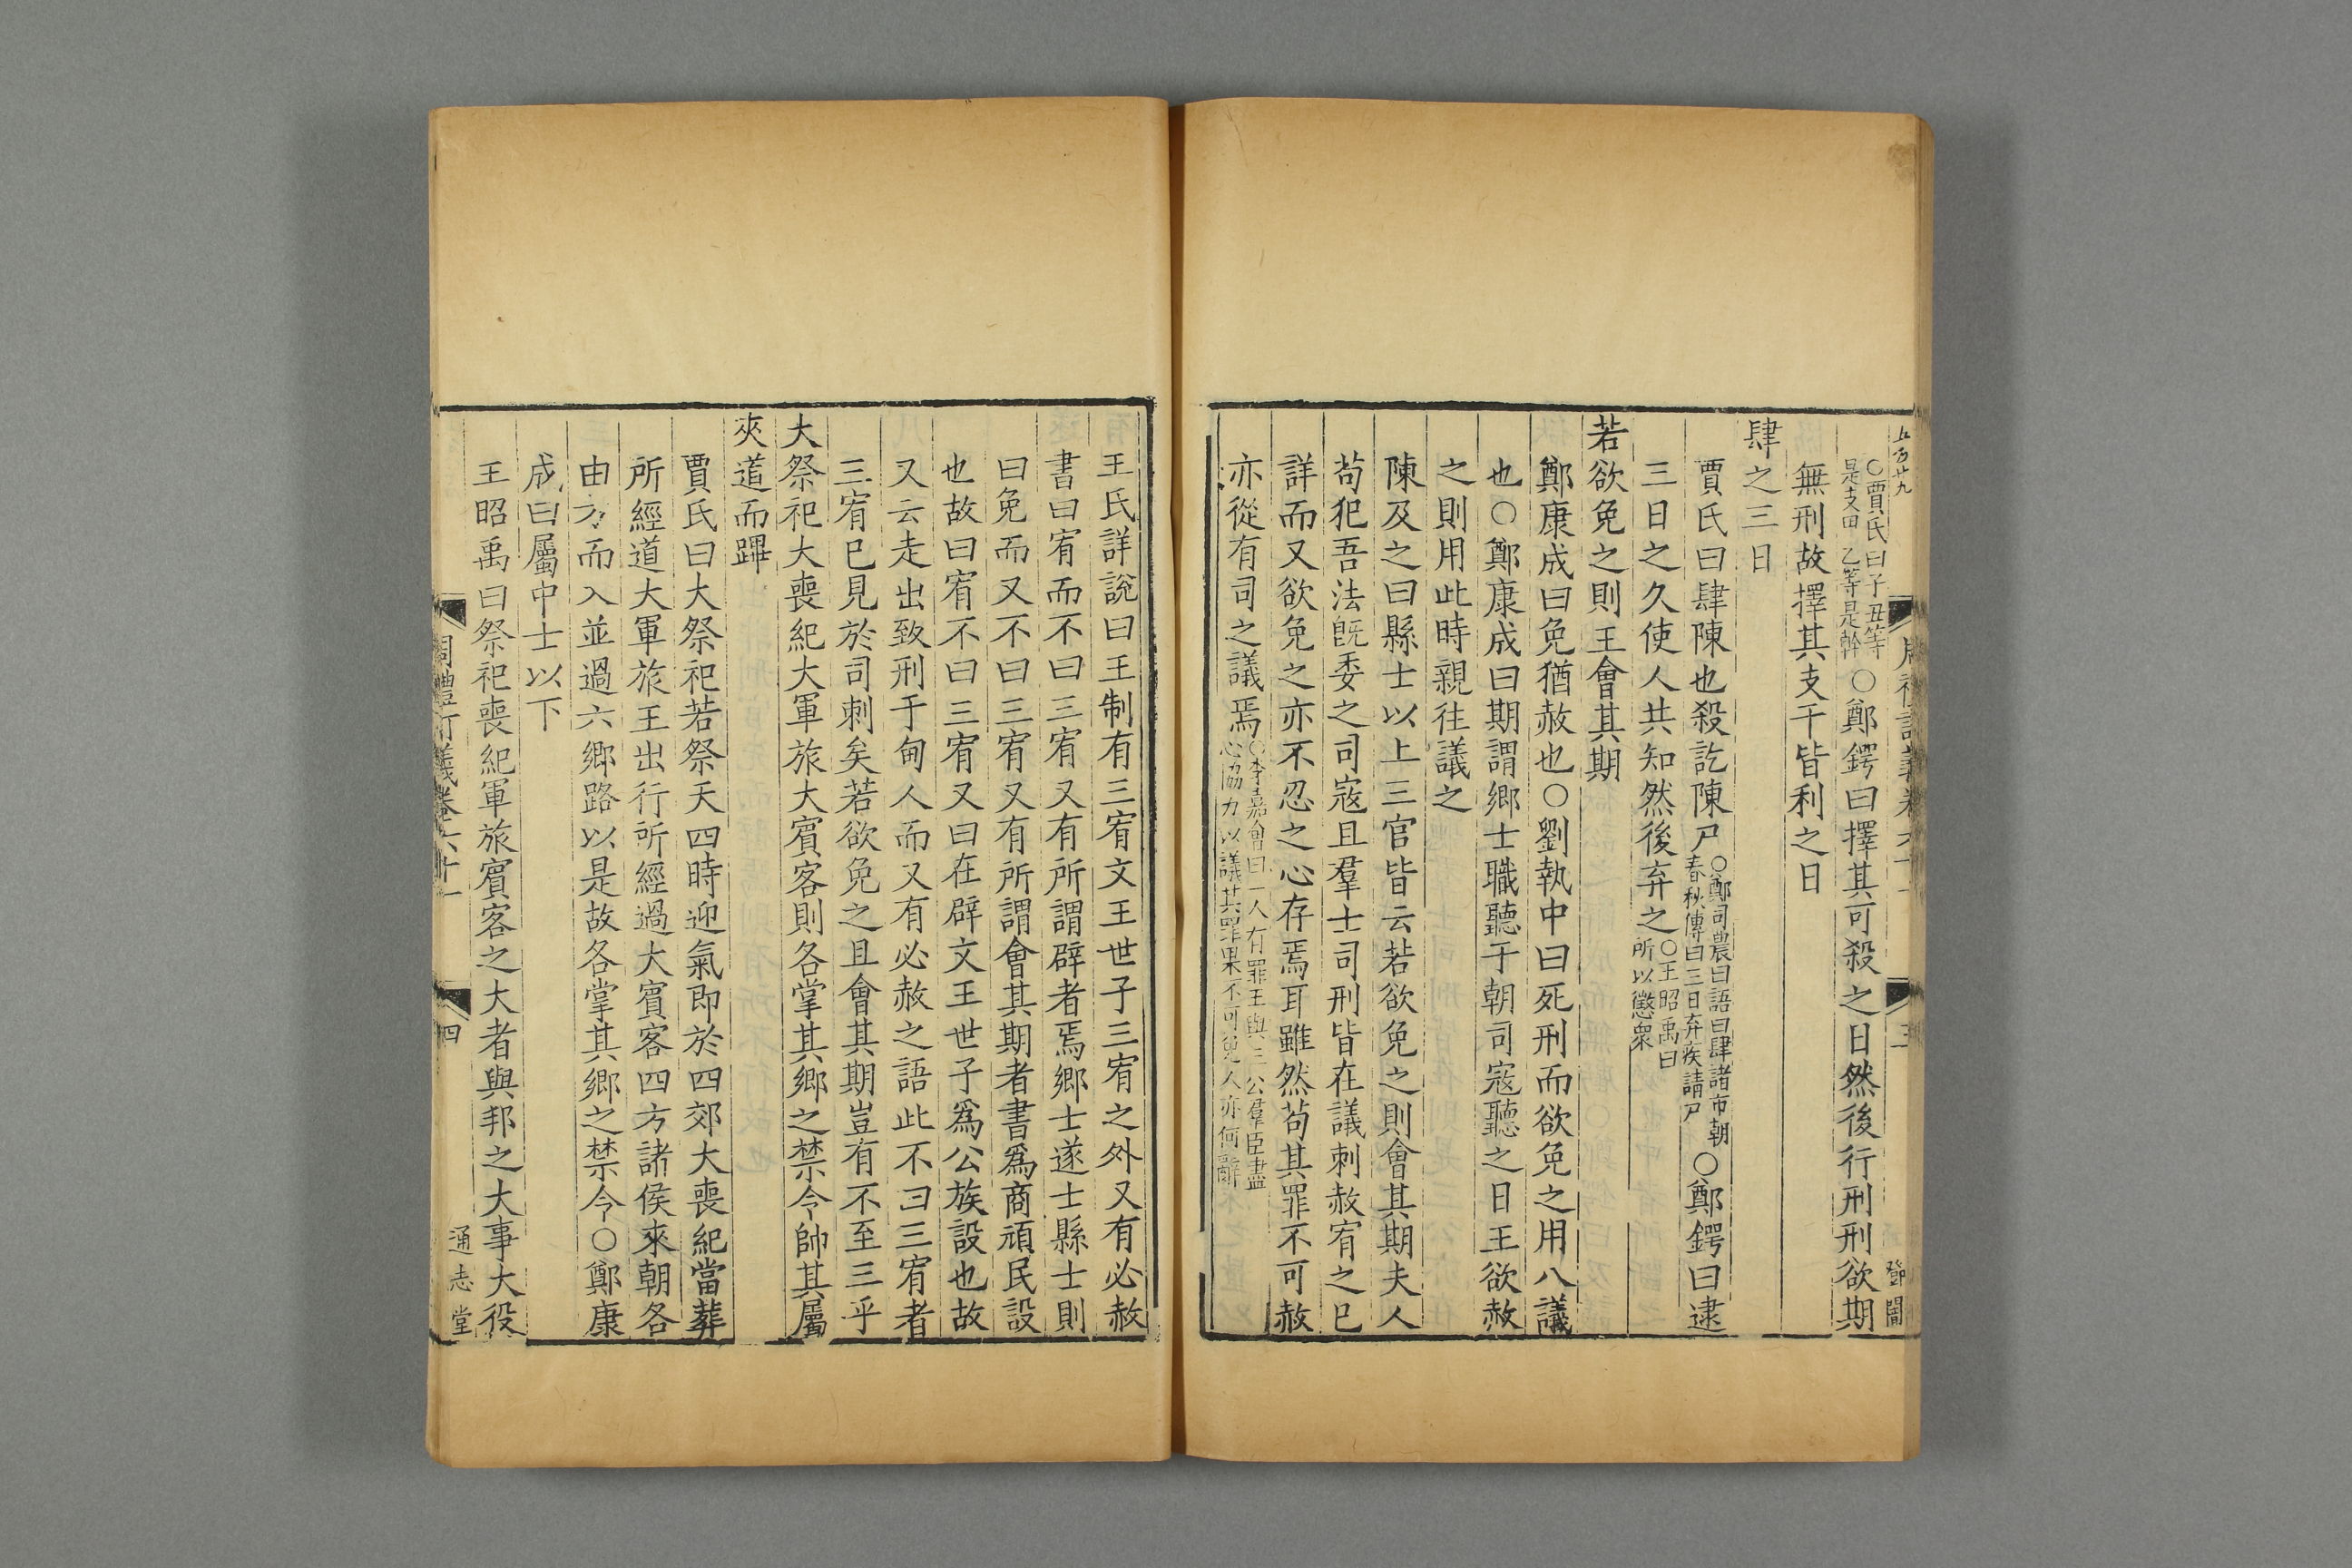 ○賈氏曰子丑等是支甲乙等是幹○鄭鍔曰擇其可殺之日然後行刑刑欲期
無刑故擇其支干皆利之日
肆之三日
賈氏曰肆陳也殺訖陳尸○鄭司農曰語曰肆諸市朝春秋傳曰三日弃疾請尸○鄭鍔曰逮
三日之久使人共知然後弃之○王昭禹曰所以懲衆
若欲免之則王會其期
鄭康成曰免猶赦也○劉執中曰死刑而欲免之用八議
也○鄭康成曰期謂鄉士職聽于朝司寇聽之日王欲赦
之則用此時親往議之
陳及之曰縣士以上三官皆云若欲免之則會其期夫人
茍犯吾法旣委之司寇且羣士司刑皆在議刺赦宥之已
詳而又欲免之亦不忍之心存焉耳雖然茍其罪不可赦
亦從有司之議焉○李嘉會曰一人有罪王與三公羣臣盡心協力以議其罪果不可免人亦何辭
王氏詳說曰王制有三宥文王世子三宥之外又有必赦
書曰宥而不曰三宥又有所謂辟者焉鄉士遂士縣士則
曰免而又不曰三宥又有所謂會其期者書爲商頑民設
也故曰宥不曰三宥又曰在辟文王世子爲公族設也故
又云走出致刑于甸人而又有必赦之語此不曰三宥者
三宥已見於司刺矣若欲免之且會其期豈有不至三乎
大祭祀大喪紀大軍旅大賓客則各掌其鄉之禁令帥其屬
夾道而蹕
賈氏曰大祭祀若祭天四時迎氣即於四郊大喪紀當葬
所經道大軍旅王出行所經過大賓客四方諸侯來朝各
由方而入並過六鄉路以是故各掌其鄉之禁令○鄭康
成曰屬中士以下
王昭禹曰祭祀喪紀軍旅賓客之大者與邦之大事大役
周禮訂義卷六十一
四
通志堂
三
鄧閶